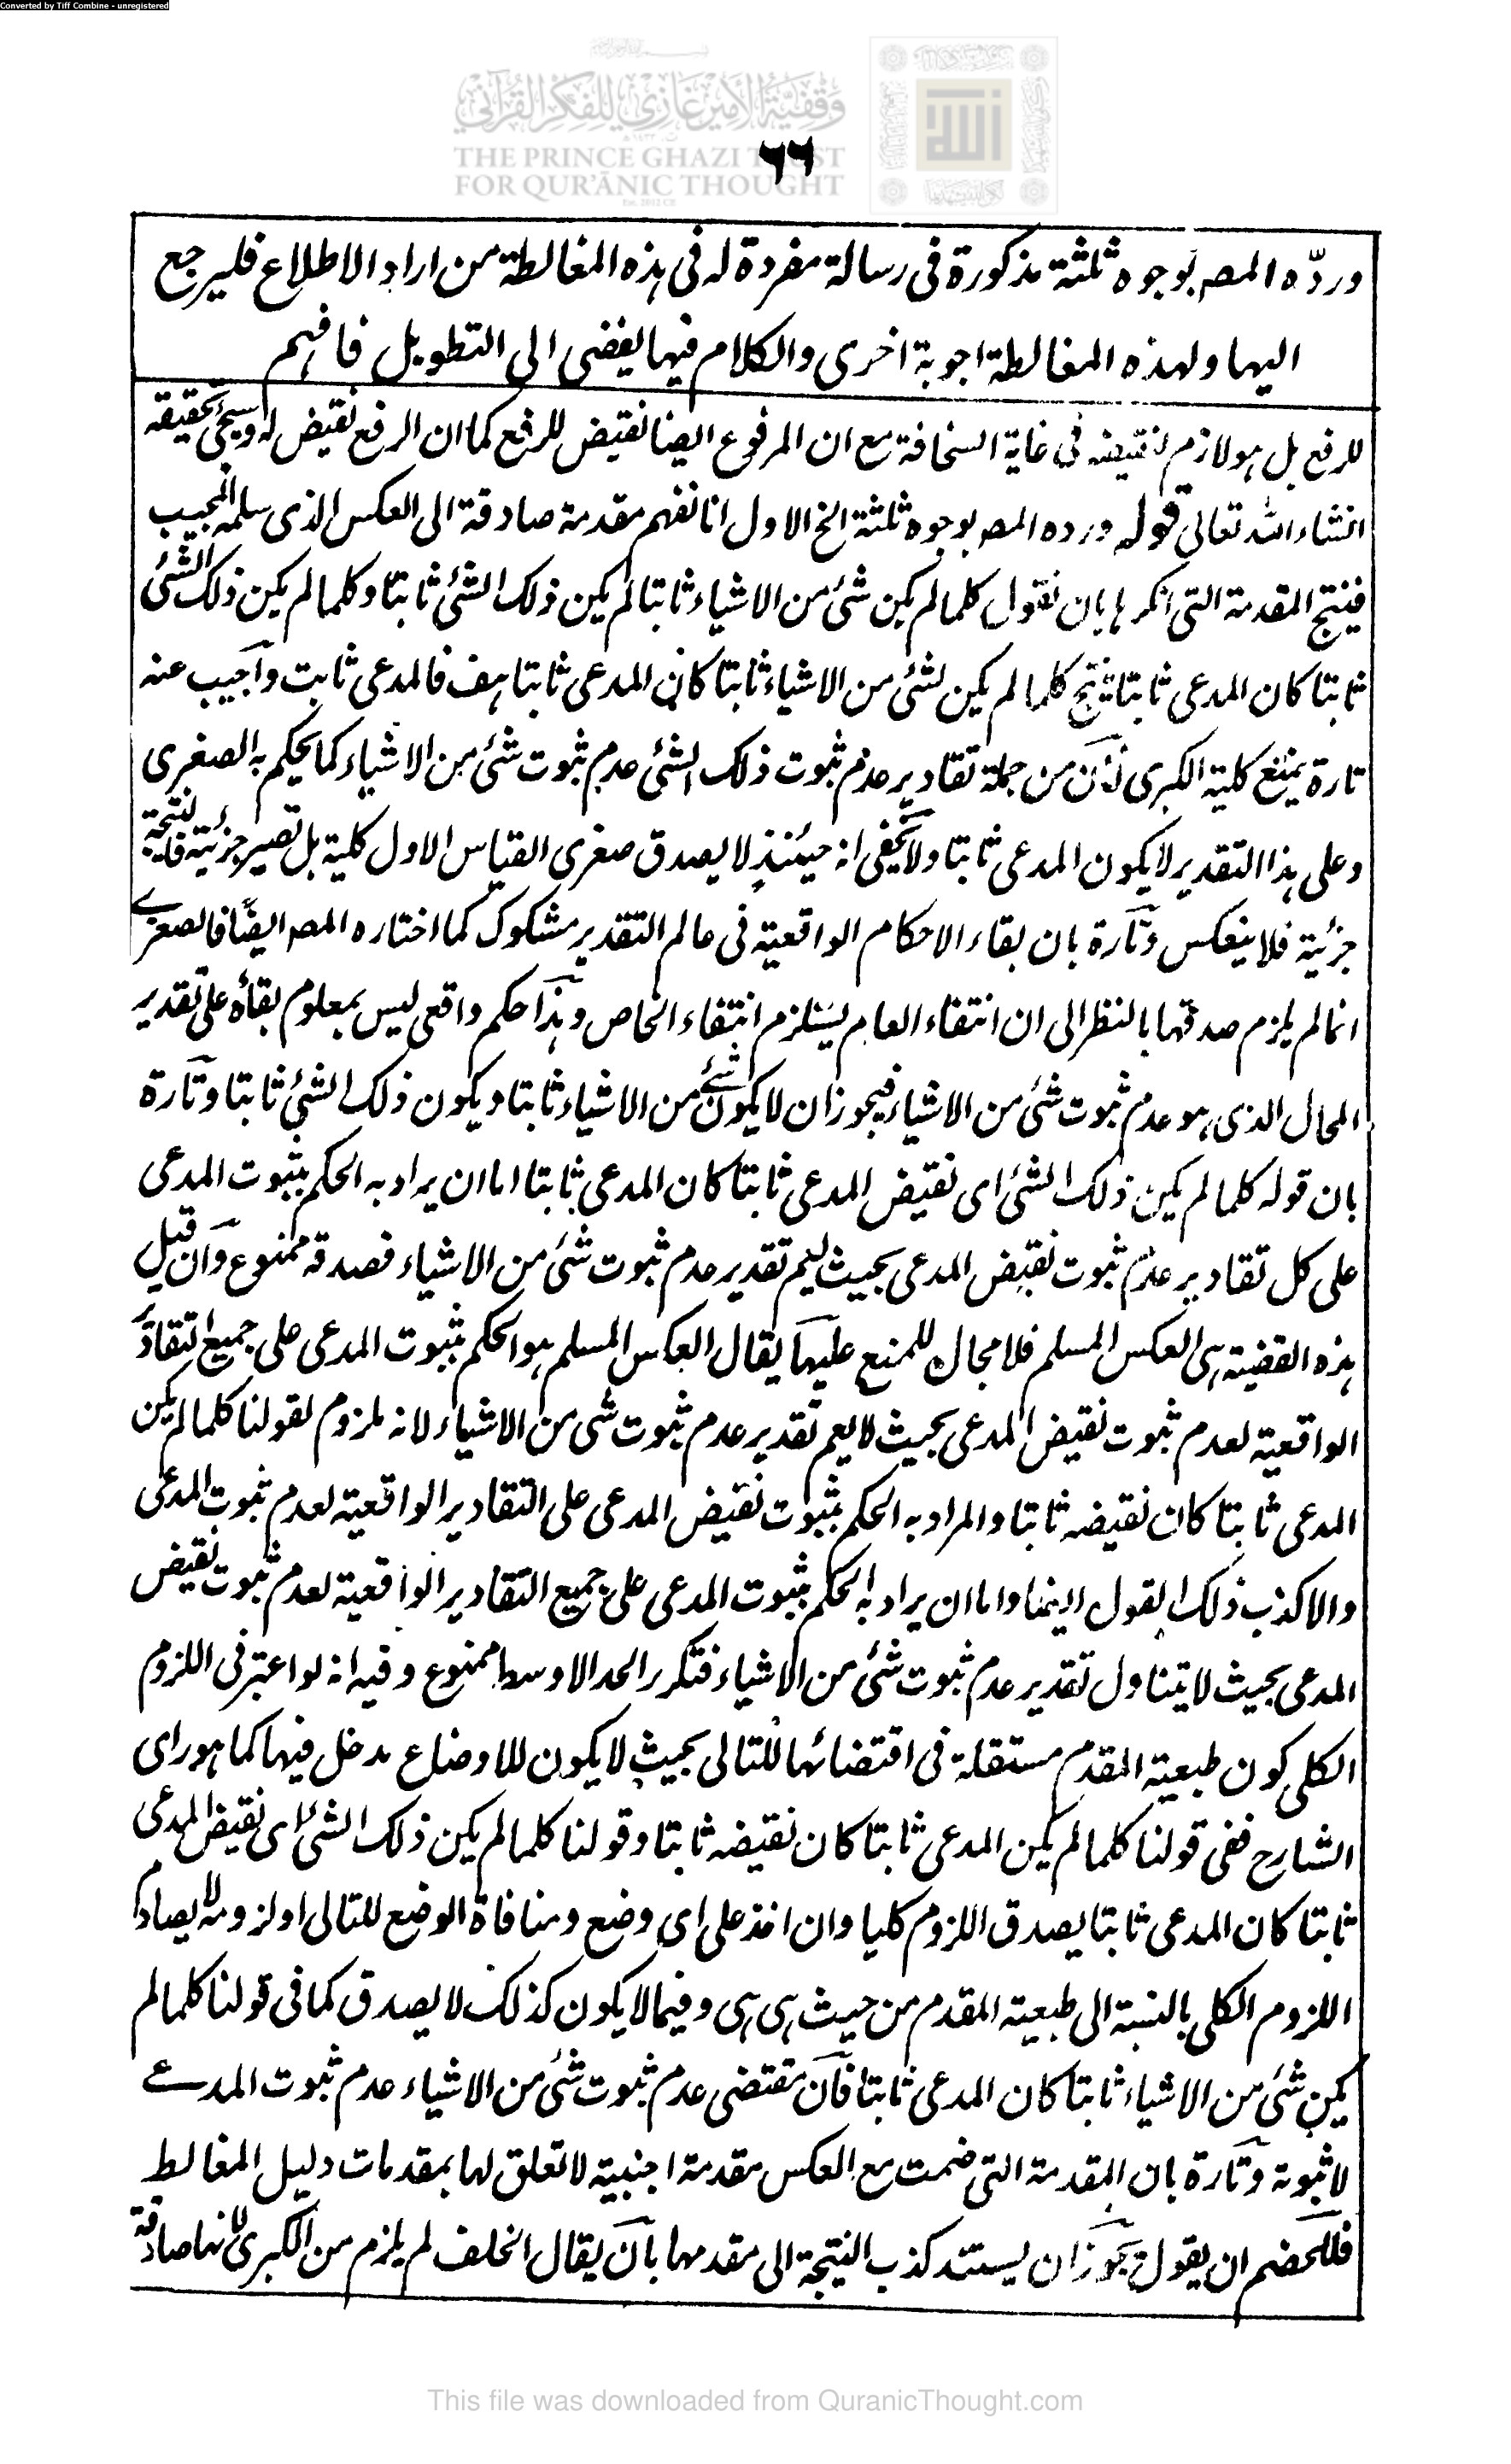 Converted by Tiff Combine - unregistered
وقفية الأمير غازي للفكر القرآني
THE PRINCE GHAZI TRUST
FOR QUR'ĀNIC THOUGHT
٦٦
وردّه المصـ بوجوه ثلثة مذكورة فى رسالة مفردة له فى هذه المغالطة من اراد الاطلاع فليرجع
اليها ولهذه المغالطة اجوبة اخرى والكلام فيها يفضى الى التطويل فافهم
للرفع بل هو لازم نقيضه فى غاية السخافة مع ان المرفوع ايضا نقيض للرفع كما ان الرفع نقيض له وسيجئ تحقيقه
انشاء الله تعالى قوله ورده المصـ بوجوه ثلثة الخ الاول انا نضم مقدمة صادقة الى العكس الذى سلمه المجيب
فينتج المقدمة التى انكرها بان نقول كلما لم يكن شئ من الاشياء ثابتا لم يكن ذلك الشئ ثابتا وكلما لم يكن ذلك الشئ
ثابتا كان المدعى ثابتا ينتج كلما لم يكن شئ من الاشياء ثابتا كان المدعى ثابتا هف فالمدعى ثابت وآجيب عنه
تارة بمنع كلية الكبرى لان من جملة تقادير عدم ثبوت ذلك الشئ عدم ثبوت شئ من الاشياء كما يحكم به الصغرى
وعلى هذا التقدير لا يكون المدعى ثابتا ولا يخفى انه حينئذ لا يصدق صغرى القياس الاول كلية بل تصير جزئية فالنتيجة
جزئية فلا ينعكس وتارة بان بقاء الاحكام الواقعية فى عالم التقدير مشكوك كما اختاره المصـ ايضًا فالصغرے
انما لم يلزم صدقها بالنظر الى ان انتفاء العام يستلزم انتفاء الخاص وهذا حكم واقعى ليس بمعلوم بقاؤه على تقدير
المحال الذى هو عدم ثبوت شئ من الاشياء فيجوز ان لا يكون شئ من الاشياء ثابتا ويكون ذلك الشئ ثابتا وتارة
بان قوله كلما لم يكن ذلك الشئ اى نقيض المدعى ثابتا كان المدعى ثابتا اما ان يراد به الحكم بثبوت المدعى
على كل تقادير عدم ثبوت نقيض المدعى بحيث يعم تقدير عدم ثبوت شئ من الاشياء فصدقه ممنوع وآن قيل
هذه القضية هى العكس المسلم فلا مجال للمنع عليها يقال العكس المسلم هو الحكم بثبوت المدعى على جميع التقادير
الواقعية لعدم ثبوت نقيض المدعى بحيث لا يعم تقدير عدم ثبوت شئ من الاشياء لانه ملزوم لقولنا كلما لم يكن
المدعى ثابتا كان نقيضه ثابتا والمراد به الحكم بثبوت نقيض المدعى على التقادير الواقعية لعدم ثبوت المدعى
والا كذب ذلك القول ايضا واما ان يراد به الحكم بثبوت المدعى على جميع التقادير الواقعية لعدم ثبوت نقيض
المدعى بحيث لا يتناول تقدير عدم ثبوت شئ من الاشياء فتكرر الحد الاوسط ممنوع وفيه انه لو اعتبر فى اللزوم
الكلى كون طبعية المقدم مستقلة فى اقتضائها للتالى بحيث لا يكون للاوضاع مدخل فيها كما هو راى
الشارح ففى قولنا كلما لم يكن المدعى ثابتا كان نقيضه ثابتا وقولنا كلما لم يكن ذلك الشئ اى نقيض المدعى
ثابتا كان المدعى ثابتا يصدق اللزوم كليا وان اخذ على اى وضع ومنافاة الوضع للتالى او لزومه لا يصادم
اللزوم الكلى بالنسبة الى طبعية المقدم من حيث هى هى وفيما لا يكون كذلك لا يصدق كما فى قولنا كلما لم
يكن شئ من الاشياء ثابتا كان المدعى ثابتا فآن مقتضى عدم ثبوت شئ من الاشياء عدم ثبوت المدعے
لا ثبوته وتارة بان المقدمة التى ضمت مع العكس مقدمة اجنبية لا تعلق لها بمقدمات دليل المغالط
فللخصم ان يقول يجوز ان يستند كذب النتيجة الى مقدمها بآن يقال الخلف لم يلزم من الكبرى لانها صادقة
This file was downloaded from QuranicThought.com